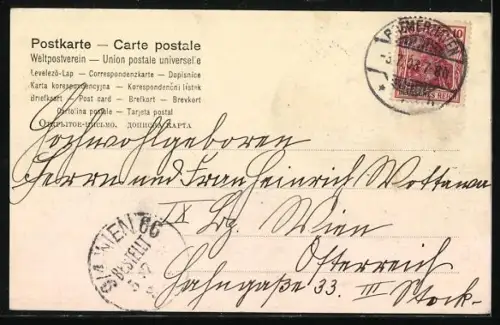 Postkarte — Carte postale
Weltpostverein — Union postale universelle
Levelező-Lap — Correspondenzkarte — Dopisnice
Karta korespondencyjna — Korespondenční lístek
Briefkaart — Post card — Brefkort — Brevkort
Cartolina postale — Tarjeta postal
Открытое-письмо. дописна карта
10
DEUTSCHES REICH
Hochwohlgeboren
Herrn und Frau Heinrich Wottawa
IX Bz. Wien
Österreich
Hahngaße 33. III Stock.
WIEN 66
BESTELLT